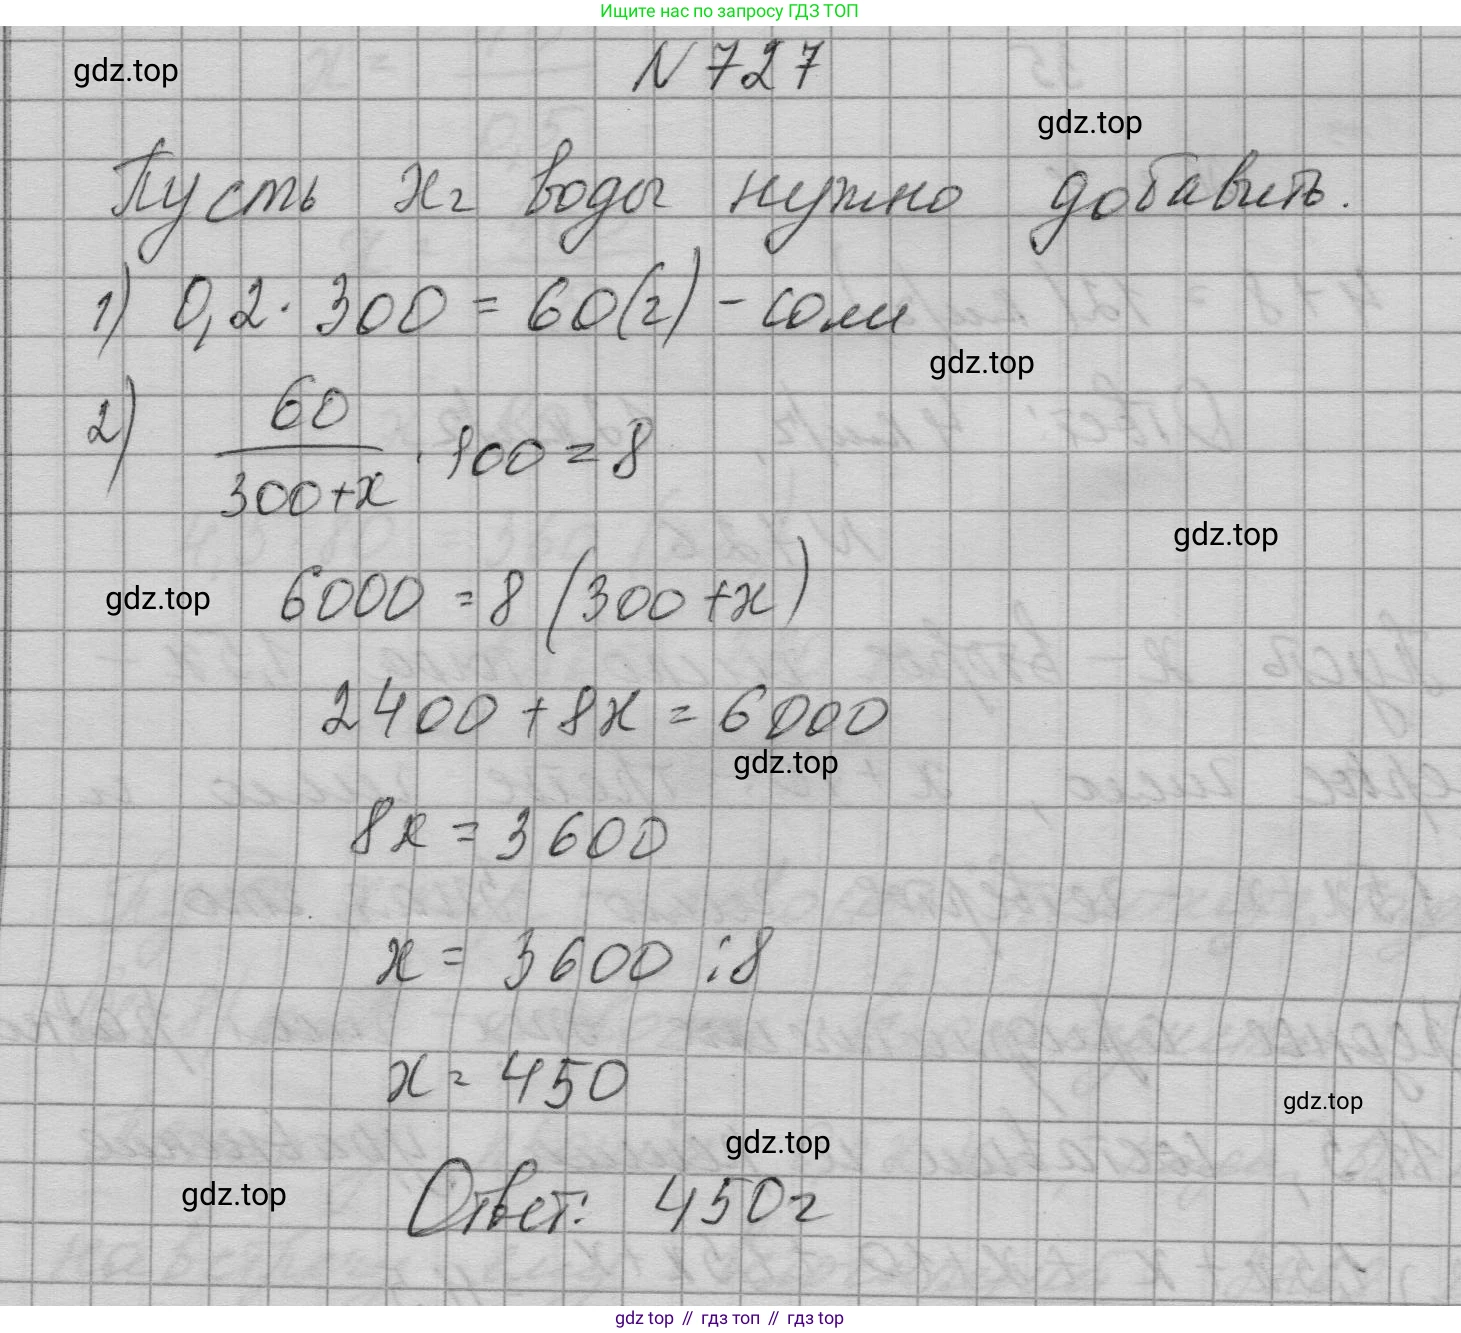 Ищите нас по запросу ГДЗ ТОП
N 727
gdz.top
gdz.top
Пусть x г воды нужно добавить.
1) 0,2 · 300 = 60 (г) - соли
gdz.top
2) 60/(300+x) · 100 = 8
gdz.top
gdz.top
6000 = 8 (300 + x)
2400 + 8x = 6000
gdz.top
8x = 3600
x = 3600 : 8
x = 450
gdz.top
gdz.top
gdz.top
Ответ: 450 г
gdz.top // гдз топ // гдз top